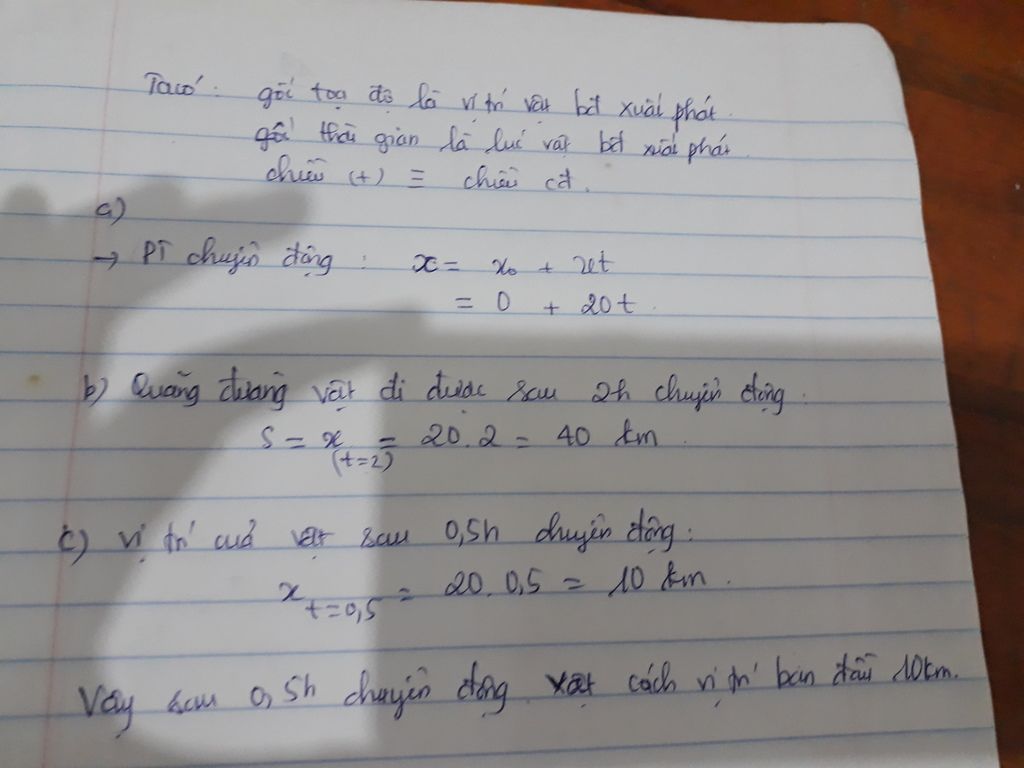 Ta có: gốc toạ độ là vị trí vật bđ xuất phát.
gốc thời gian là lúc vật bđ xuất phát
chiều (+) ≡ chiều cđ.
a)
→ PT chuyển động : x = x₀ + vt
= 0 + 20t.
b) Quãng đường vật đi được sau 2h chuyển động:
S = x = 20.2 = 40 km
(t=2)
c) vị trí của vật sau 0,5h chuyển động:
x t=0,5 = 20.0,5 = 10 km.
Vậy sau 0,5h chuyển động vật cách vị trí ban đầu 10km.